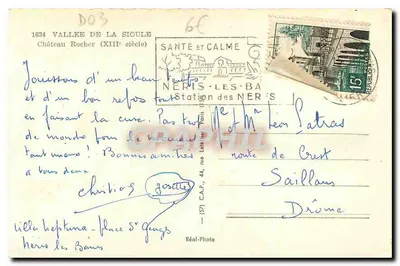 DO3
6€
1634 VALLEE DE LA SIOULE
Château Rocher (XIIIe siècle)
SANTÉ ET CALME
NERIS-LES-BA
Station des NERFS
15F
Jouissons d'un beau temps
et d'un bon repos tout
en faisant la cure. Pas trop
de monde pour le moment
tant mieux ! Bonnes amitiés
a vous deux
Josette
villa Neptuna - place St Georges
Néris les Bains
Mr et Mme Léon Latras
route de Crest
Saillans
Drôme
Réal-Photo